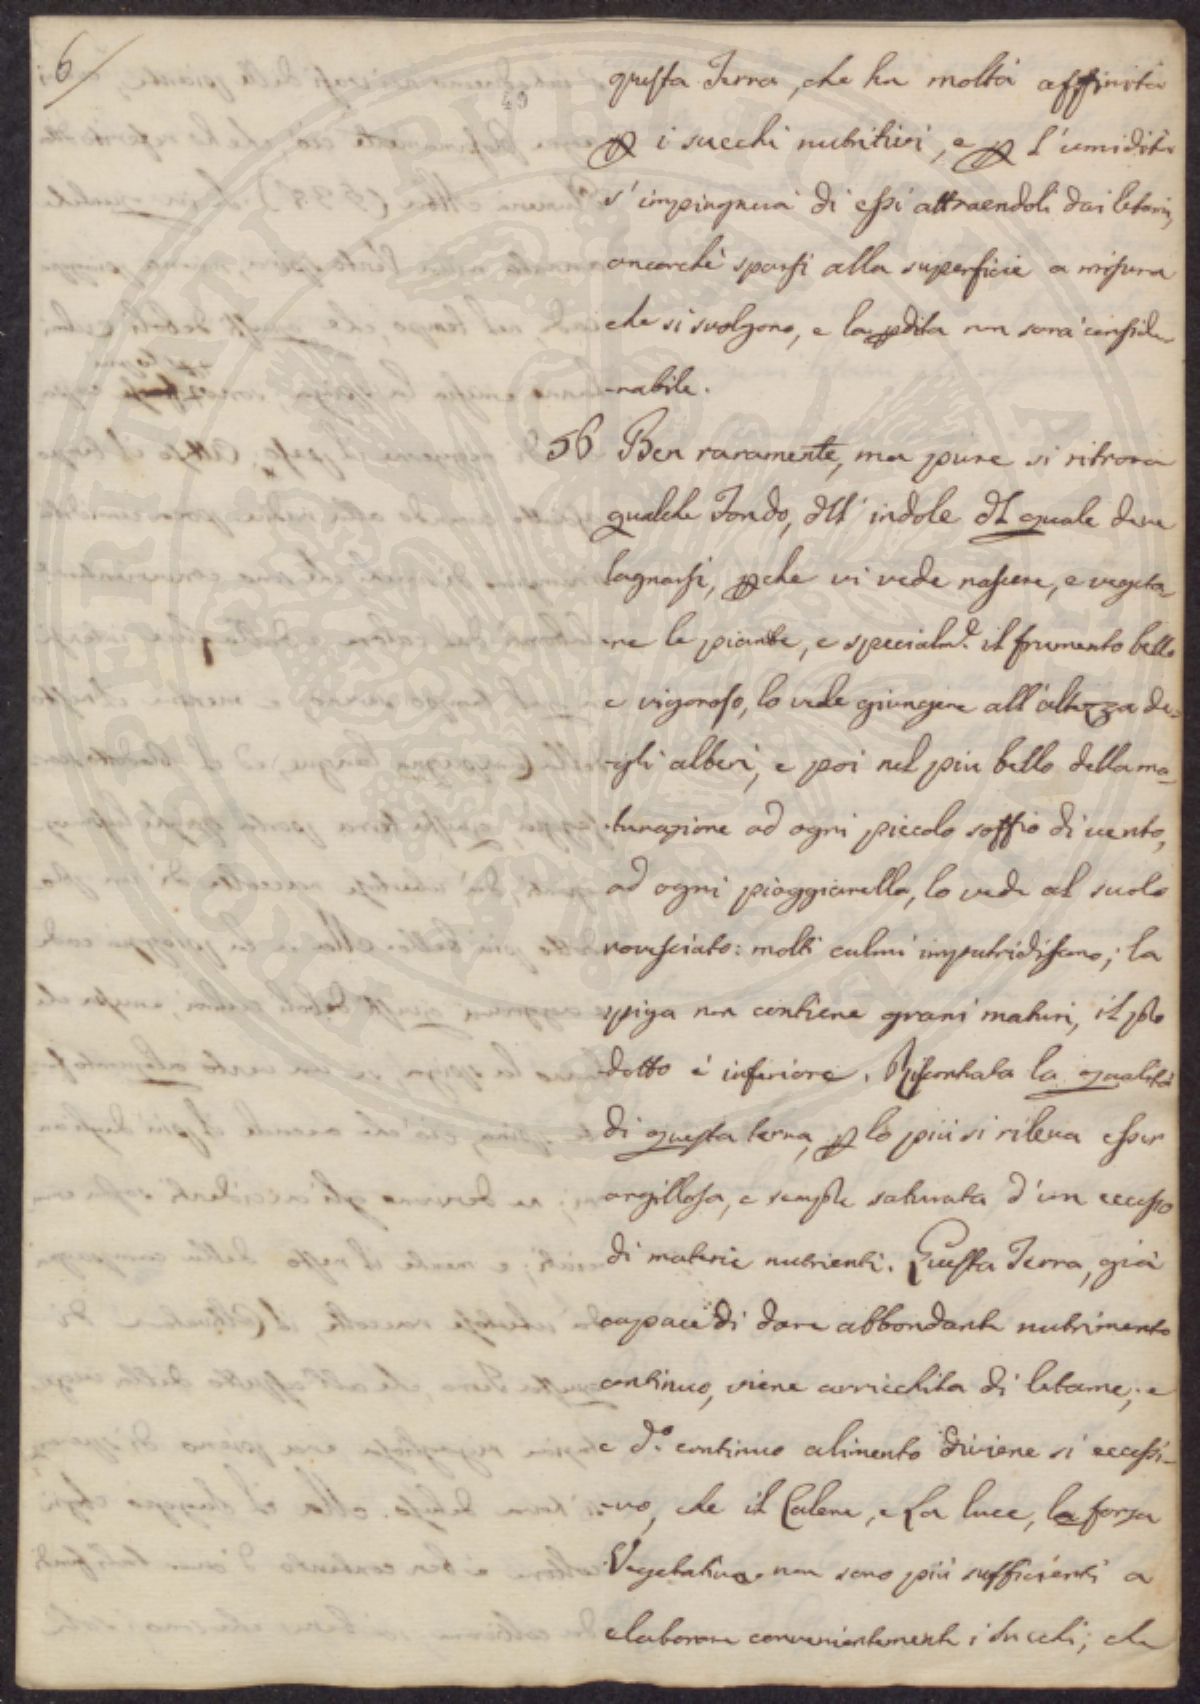 6/
49
questa Terra, che ha molta affinità
p i succhi nutritivi, e p l'umidità
s'impinguerà di essi attraendoli dai letami,
ancorchè sparsi alla superficie a misura
che si svolgono, e la pdita non sarà conside-
-rabile.
56 Ben raramente, ma pure si ritrova
qualche Fondo, dell'indole del quale deve
lagnarsi, pche vi vede nascere, e vegeta-
-re le piante, e specialme. il frumento bello
e vigoroso, lo vede giungere all'altezza de-
-gli alberi, e poi nel più bello della ma-
-turazione ad ogni piccolo soffio di vento,
ad ogni pioggiarella, lo vede al suolo
rovesciato: molti culmi imputridiscono; la
spiga non contiene grani maturi, il pro
dotto è inferiore. Riscontrata la qualità
di questa terra, p lo più si rileva esser
argillosa, e sempre saturata d'un eccesso
di materie nutrienti. Questa Terra, già
capace di dare abbondante nutrimento
continuo, viene arricchita di letame; e
e do. continuo alimento diviene sì eccessi-
-vo, che il Calore, e La luce, la forza
Vegetativa non sono più sufficienti a
elaborare convenientemente i succhi; che